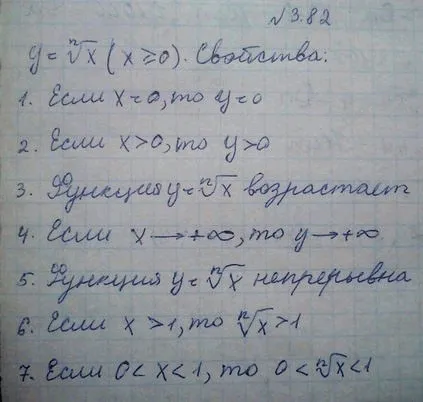 №3.82
y = ⁿ√x (x ≥ 0). Свойства:
1. Если x = 0, то y = 0
2. Если x > 0, то y > 0
3. Функция y = ⁿ√x возрастает
4. Если x → +∞, то y → +∞
5. Функция y = ⁿ√x непрерывна
6. Если x > 1, то ⁿ√x > 1
7. Если 0 < x < 1, то 0 < ⁿ√x < 1